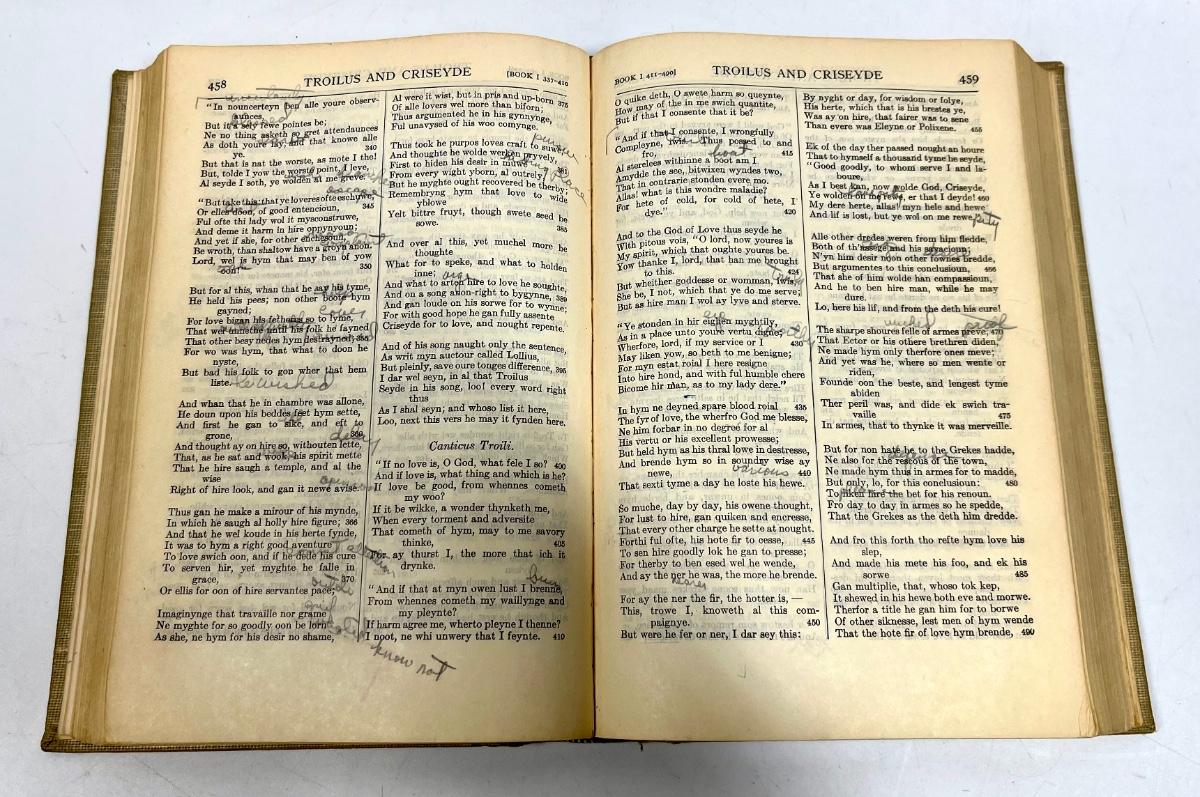 458 TROILUS AND CRISEYDE [BOOK I 337-410
uncertainty
"In nouncerteyn ben alle youre observ-
aunces,
But it a sely fewe pointes be;
Ne no thing asketh so gret attendaunces
As doth youre lay, and that knowe alle
ye.
340
But that is nat the worste, as mote I the!
But, tolde I yow the worste point, I leve,
Al seyde I soth, ye wolden at me greve.
escape
"But take this: that ye loveres ofte eschuwe,
Or elles doon, of good entencioun, 345
Ful ofte thi lady wol it mysconstruwe,
And deme it harm in hire oppynyoun;
And yet if she, for other enchesoun,
Be wroth, than shaltow have a groyn anon.
Lord, wel is hym that may ben of yow
oon!" 350
But for al this, whan that he say his tyme,
He held his pees; non other boote hym
gayned;
For love bigan his fetheres so to lyme,
That wel unnethe until his folk he fayned
That other besy nedes hym destrayned; 355
For wo was hym, that what to doon he
nyste,
But bad his folk to gon wher that hem
liste.
he wished
And whan that he in chambre was allone,
He doun upon his beddes feet hym sette,
And first he gan to sike, and eft to
grone, 360
delay
And thought ay on hire so, withouten lette,
That, as he sat and wook, his spirit mette
That he hire saugh a temple, and al the
wise
Right of hire look, and gan it newe avise.
Thus gan he make a mirour of his mynde,
In which he saugh al holly hire figure; 366
And that he wel koude in his herte fynde,
It was to hym a right good aventure
To love swich oon, and if he dede his cure
To serven hir, yet myghte he falle in
grace, 370
Or ellis for oon of hire servantes pace;
Imaginynge that travaille nor grame
Ne myghte for so goodly oon be lorn
As she, ne hym for his desir no shame,
Al were it wist, but in pris and up-born 375
Of alle lovers wel more than biforn;
Thus argumented he in his gynnynge,
Ful unavysed of his woo comynge.
Thus took he purpos loves craft to suwe,
And thoughte he wolde werken pryvely,
First to hiden his desir in muwe
From every wight yborn, al outrely,
But he myghte ought recovered be therby;
Remembryng hym that love to wide
yblowe
Yelt bittre fruyt, though swete seed be
sowe. 385
And over al this, yet muchel more he
thoughte
What for to speke, and what to holden
inne;
And what to arten hire to love he soughte,
And on a song anon-right to bygynne, 389
And gan loude on his sorwe for to wynne;
For with good hope he gan fully assente
Criseyde for to love, and nought repente.
And of his song naught only the sentence,
As writ myn auctour called Lollius,
But pleinly, save oure tonges difference, 395
I dar wel seyn, in al that Troilus
Seyde in his song, loo! every word right
thus
As I shal seyn; and whoso list it here,
Loo, next this vers he may it fynden here.
Canticus Troili.
"If no love is, O God, what fele I so? 400
And if love is, what thing and which is he?
If love be good, from whennes cometh
my woo?
If it be wikke, a wonder thynketh me,
When every torment and adversite
That cometh of hym, may to me savory
thinke, 405
For ay thurst I, the more that ich it
drynke.
burn
"And if that at myn owen lust I brenne,
From whennes cometh my waillynge and
my pleynte?
If harm agree me, wherto pleyne I thenne?
I noot, ne whi unwery that I feynte. 410
know not
BOOK I 411-490] TROILUS AND CRISEYDE 459
O quike deth, O swete harm so queynte,
How may of the in me swich quantite,
But if that I consente that it be?
"And if that I consente, I wrongfully
Compleyne, iwis. Thus possed to and
fro, 415
boat
Al sterelees withinne a boot am I
Amydde the see, bitwixen wyndes two,
That in contrarie stonden evere mo.
Allas! what is this wondre maladie?
For hete of cold, for cold of hete, I
dye." 420
And to the God of Love thus seyde he
With pitous vois, "O lord, now youres is
My spirit, which that oughte youres be.
Yow thanke I, lord, that han me brought
to this. 424
But wheither goddesse or womman, iwis,
She be, I not, which that ye do me serve;
But as hire man I wol ay lyve and sterve.
"Ye stonden in hir eighen myghtily,
As in a place unto youre vertu digne;
Wherfore, lord, if my service or I 430
May liken yow, so beth to me benigne;
For myn estat roial I here resigne
Into hire hond, and with ful humble chere
Bicome hir man, as to my lady dere."
In hym ne deyned spare blood roial 435
The fyr of love, the wherfro God me blesse,
Ne him forbar in no degree for al
His vertu or his excellent prowesse;
But held hym as his thral lowe in destresse,
And brende hym so in soundry wise ay
newe, 440
various
That sexti tyme a day he loste his hewe.
So muche, day by day, his owene thought,
For lust to hire, gan quiken and encresse,
That every other charge he sette at nought.
Forthi ful ofte, his hote fir to cesse, 445
To sen hire goodly lok he gan to presse;
For therby to ben esed wel he wende,
And ay the ner he was, the more he brende.
nearer
For ay the ner the fir, the hotter is,—
This, trowe I, knoweth al this com-
paignye. 450
But were he fer or ner, I dar sey this:
By nyght or day, for wisdom or folye,
His herte, which that is his brestes yë,
Was ay on hire, that fairer was to sene
Than evere was Eleyne or Polixene. 455
Ek of the day ther passed nought an houre
That to hymself a thousand tyme he seyde,
"Good goodly, to whom serve I and la-
boure,
As I best kan, now wolde God, Criseyde,
Ye wolden on me rewe, er that I deyde! 460
My dere herte, allas! myn hele and hewe
And lif is lost, but ye wol on me rewe."
pity
Alle other dredes weren from him fledde,
Both of th'assege and his savacioun;
N'yn him desir noon other fownes bredde,
But argumentes to this conclusioun, 466
That she of him wolde han compassioun,
And he to ben hire man, while he may
dure.
Lo, here his lif, and from the deth his cure!
The sharpe shoures felle of armes preve, 470
That Ector or his othere brethren diden,
Ne made hym only therfore ones meve;
And yet was he, where so men wente or
riden,
Founde oon the beste, and lengest tyme
abiden
Ther peril was, and dide ek swich tra-
vaille 475
In armes, that to thynke it was merveille.
But for non hate he to the Grekes hadde,
Ne also for the rescous of the town,
Ne made hym thus in armes for to madde,
But only, lo, for this conclusioun: 480
To liken hire the bet for his renoun.
Fro day to day in armes so he spedde,
That the Grekes as the deth him dredde.
And fro this forth tho refte hym love his
slep,
And made his mete his foo, and ek his
sorwe 485
Gan multiplie, that, whoso tok kep,
It shewed in his hewe both eve and morwe.
Therfor a title he gan him for to borwe
Of other siknesse, lest men of hym wende
That the hote fir of love hym brende, 490